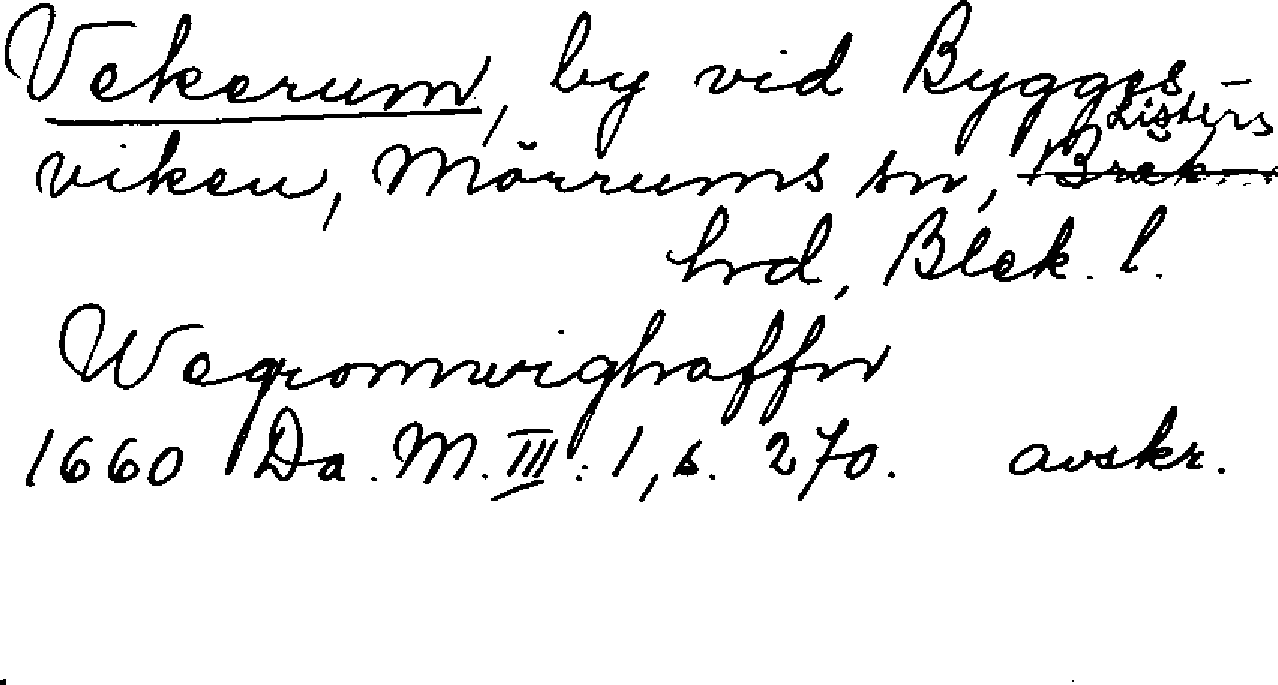 Vekerum, by vid Bygges-
viken, Mörrums sn, Listers
hrd, Blek. l.
Wegromwighaffn
1660 Da. M. III: 1, s. 270. avskr.